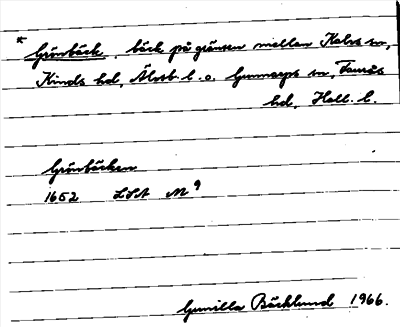 * Grönbäck, bäck på gränsen mellan Kalvs sn,
Kinds hd, Älvsb. l. o. Gunnarps sn, Faurås
hd, Hall. l.
Grönbäcken
1652 LSA M 9
Gunilla Bäcklund 1966.